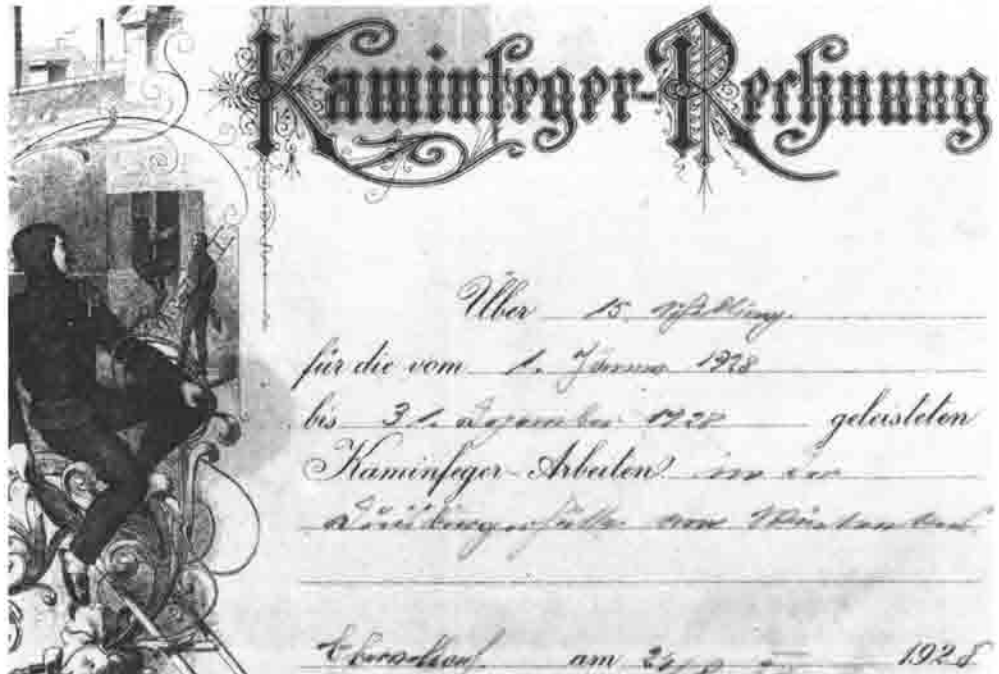 Kaminfeger-Rechnung
Über 15 Schilling
für die vom 1. Jänner 1928
bis 31. Dezember 1928 geleisteten
Kaminfeger-Arbeiten in der
am 1928